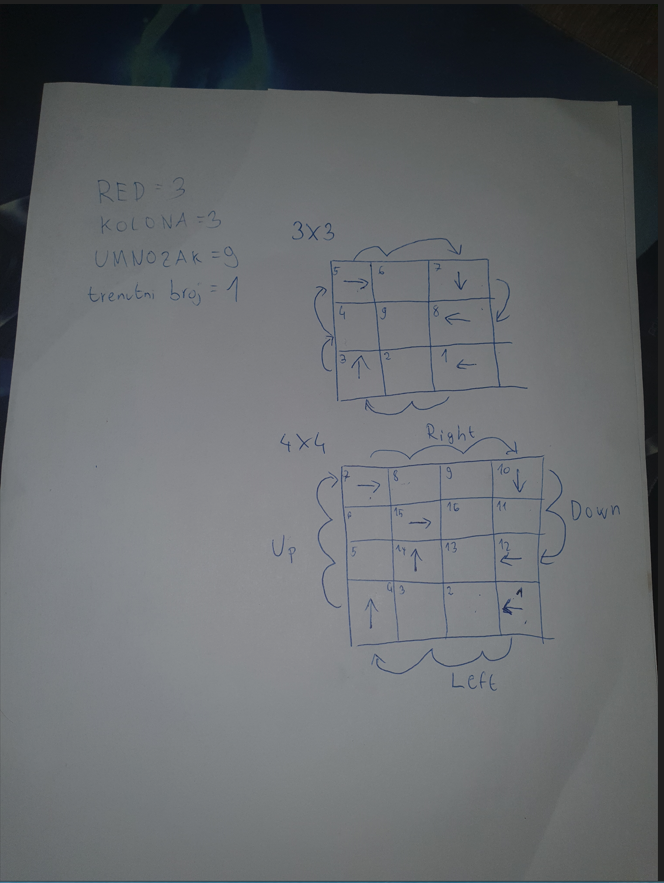 RED = 3
KOLONA = 3
UMNOZAK = 9
trenutni broj = 1
3X3
5 → 6 7 ↓
4 9 8 ←
3 ↑ 2 1 ←
4X4
Right
7 → 8 9 10 ↓
6 15 → 16 11
5 14 ↑ 13 12 ←
4 ↑ 3 2 1 ←
Up
Down
Left